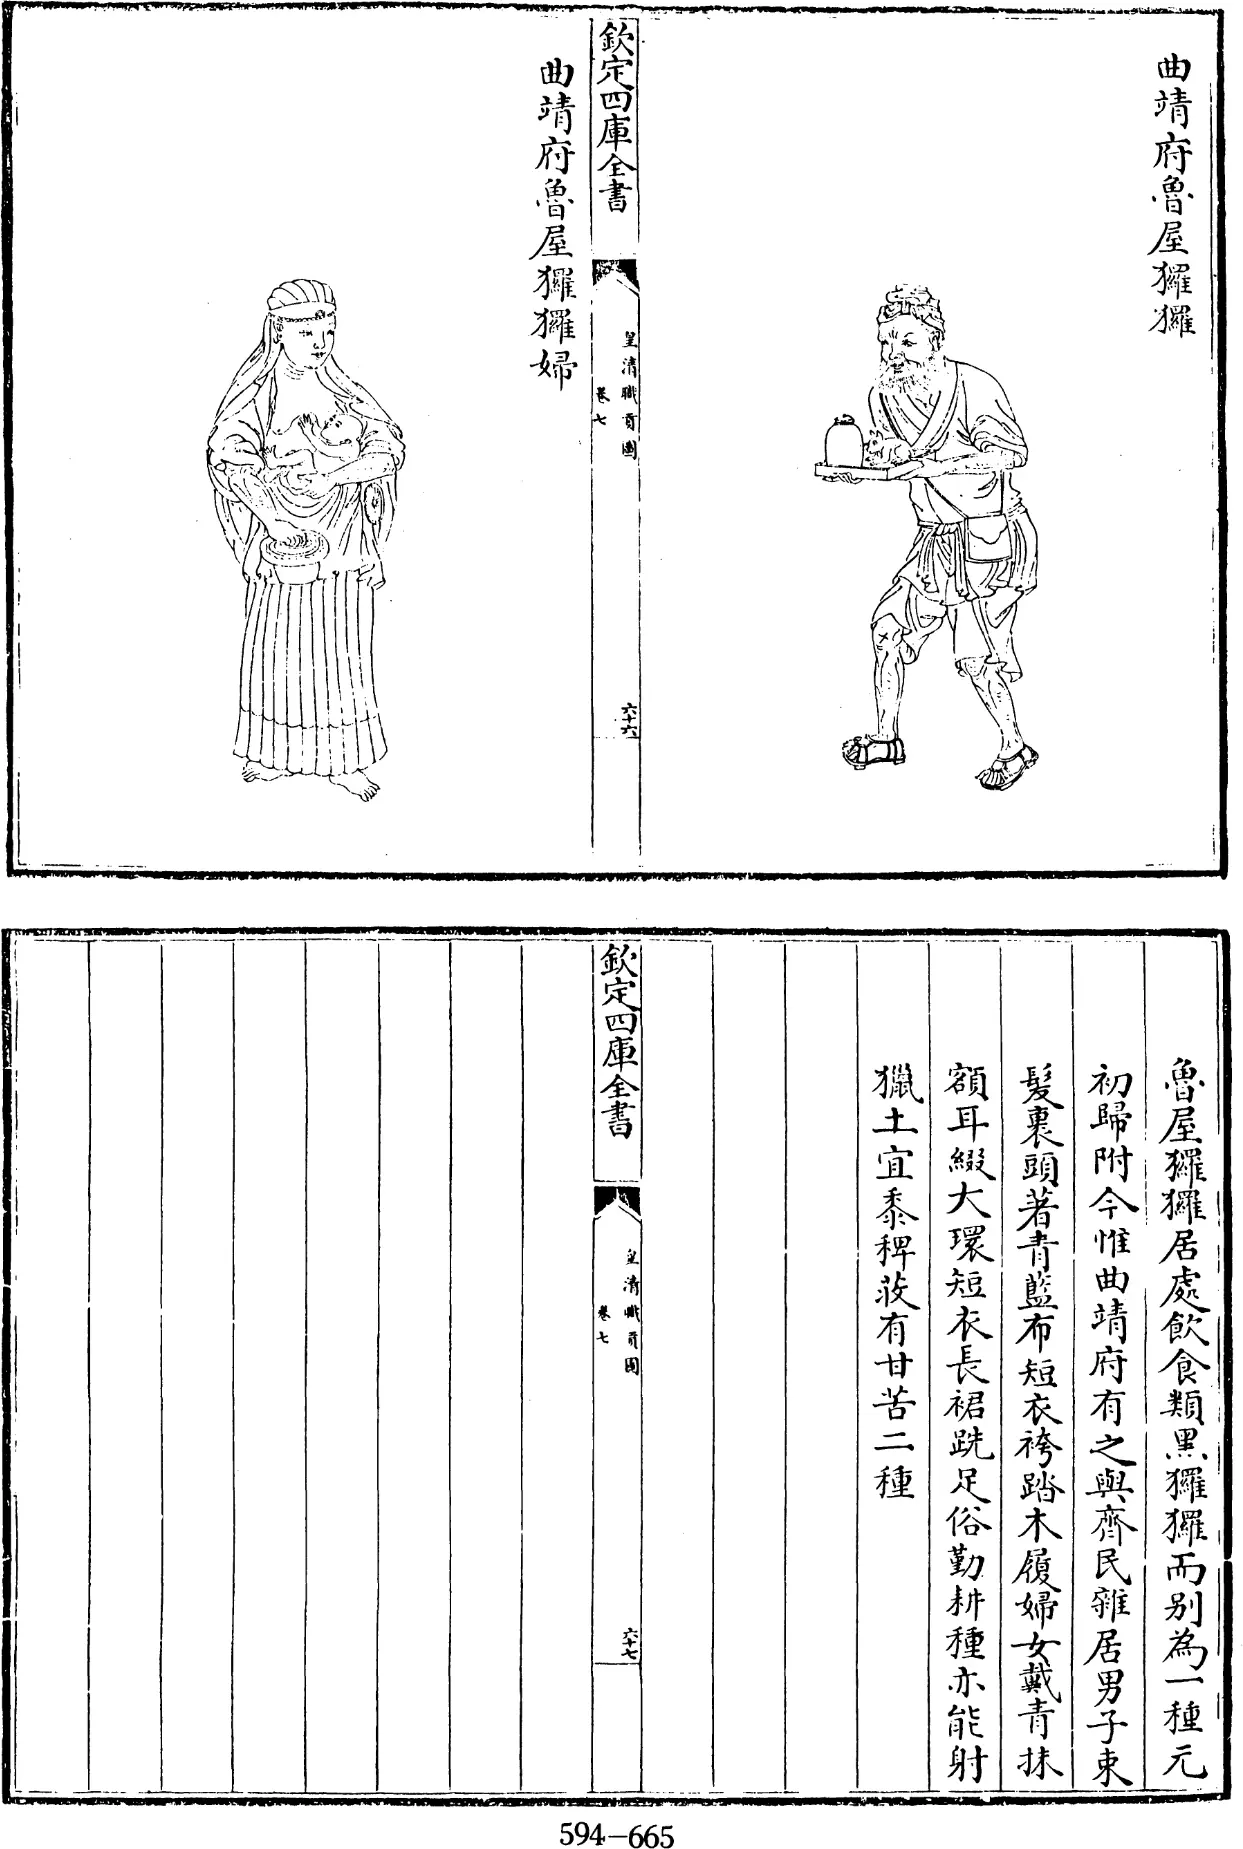 曲靖府魯屋玀玀
欽定四庫全書
皇清職貢圖
卷七
六十六
曲靖府魯屋玀玀婦
魯屋玀玀居處飲食類黑玀玀而別為一種元
初歸附今惟曲靖府有之與齊民雜居男子束
髮裹頭著青藍布短衣袴踏木履婦女戴青抹
額耳綴大環短衣長裙跣足俗勤耕種亦能射
獵土宜黍稗荍有甘苦二種
欽定四庫全書
皇清職貢圖
卷七
六十七
594-665